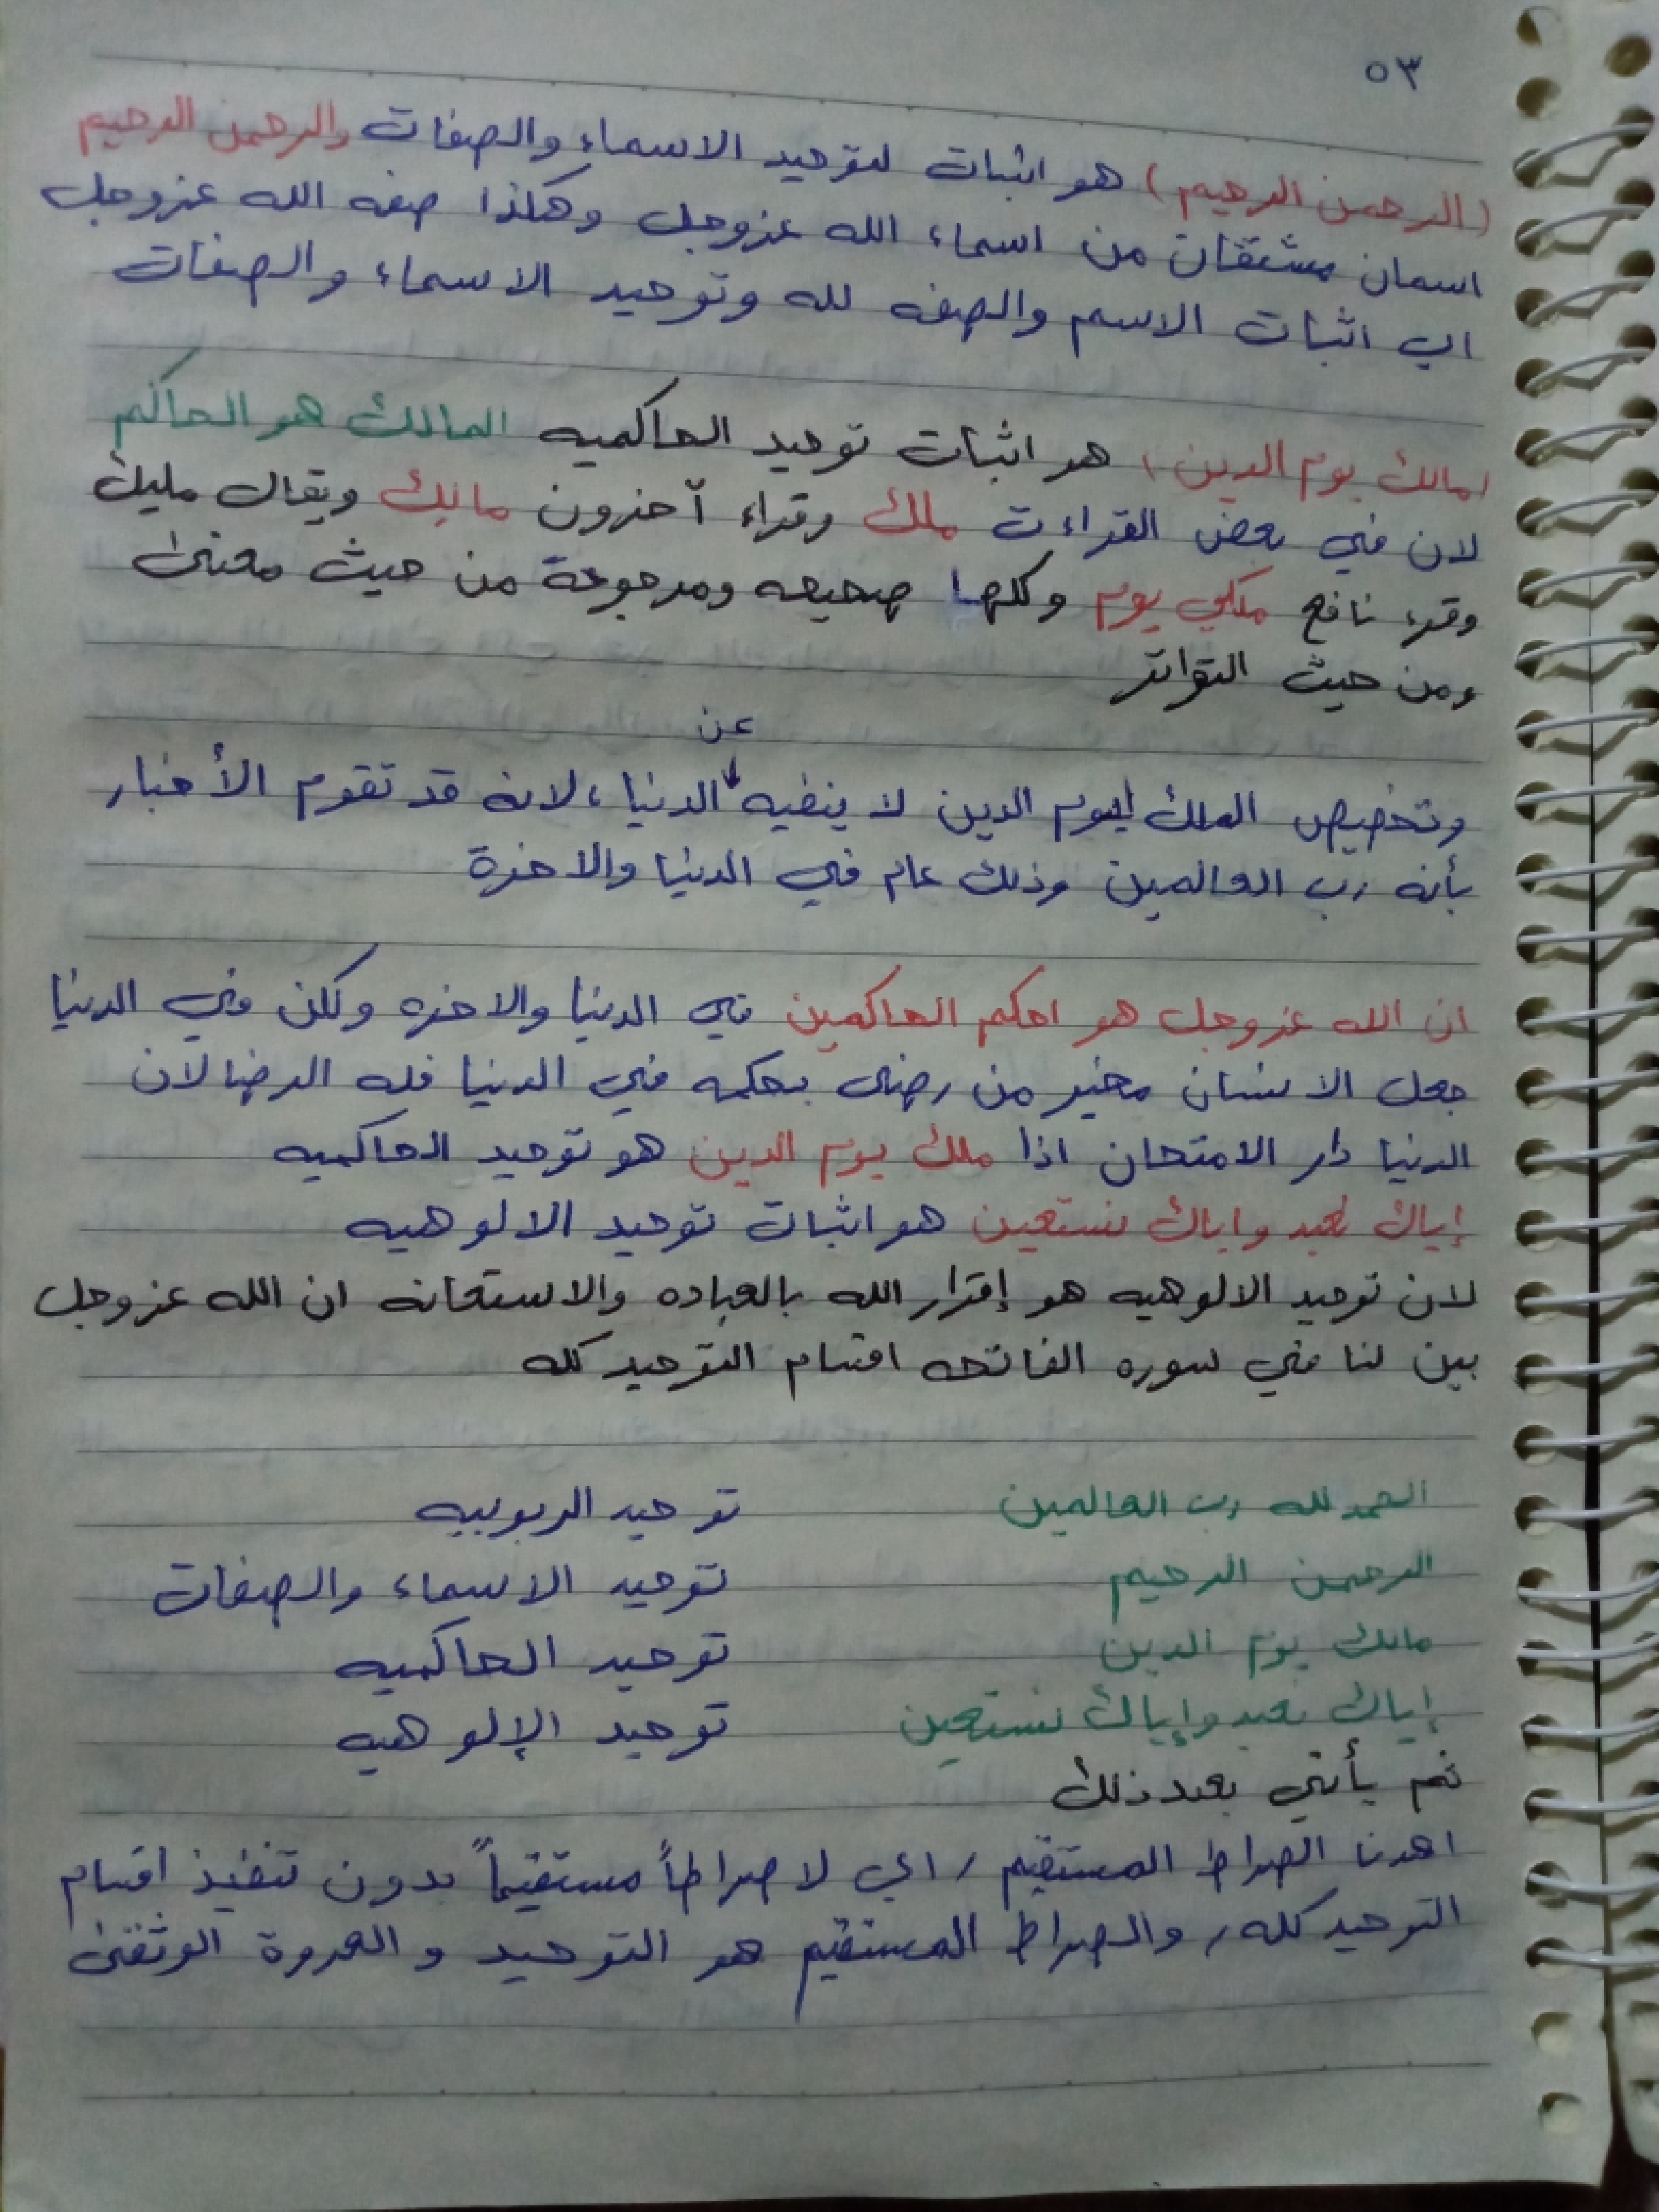 ٥٣
(الرحمن الرحيم) هو اثبات لتوحيد الاسماء والصفات والرحمن الرحيم
اسمان مشتقان من اسماء الله عزوجل وهكذا صفه الله عزوجل
اي اثبات الاسم والصفه لله وتوحيد الاسماء والصفات
(مالك يوم الدين) هو اثبات توحيد الحاكميه المالك هو الحاكم
لان في بعض القراءت ملك وقراء آخرون مالك ويقال مليك
وقرء نافع ملكي يوم وكلها صحيحه ومرجوعة من حيث معنى
ومن حيث التواتر
عن
وتخصيص الملك ليوم الدين لا ينفيه الدنيا، لانه قد تقوم الأخبار
بأنه رب العالمين وذلك عام في الدنيا والاخرة
ان الله عزوجل هو احكم الحاكمين في الدنيا والاخره ولكن في الدنيا
جعل الانسان مخير من رضى بحكمه في الدنيا فله الرضا لان
الدنيا دار الامتحان اذا ملك يوم الدين هو توحيد الحاكميه
إياك نعبد واياك نستعين هو اثبات توحيد الالوهيه
لان توحيد الالوهيه هو إقرار الله بالعباده والاستعانه ان الله عزوجل
بين لنا في سوره الفاتحه اقسام التوحيد كله
الحمد لله رب العالمين توحيد الربوبيه
الرحمن الرحيم توحيد الاسماء والصفات
مالك يوم الدين توحيد الحاكميه
إياك نعبد وإياك نستعين توحيد الإلوهيه
ثم يأتي بعد ذلك
اهدنا الصراط المستقيم / اي لا صراطاً مستقيماً بدون تنفيذ اقسام
التوحيد كله / والصراط المستقيم هو التوحيد و العروة الوثقى